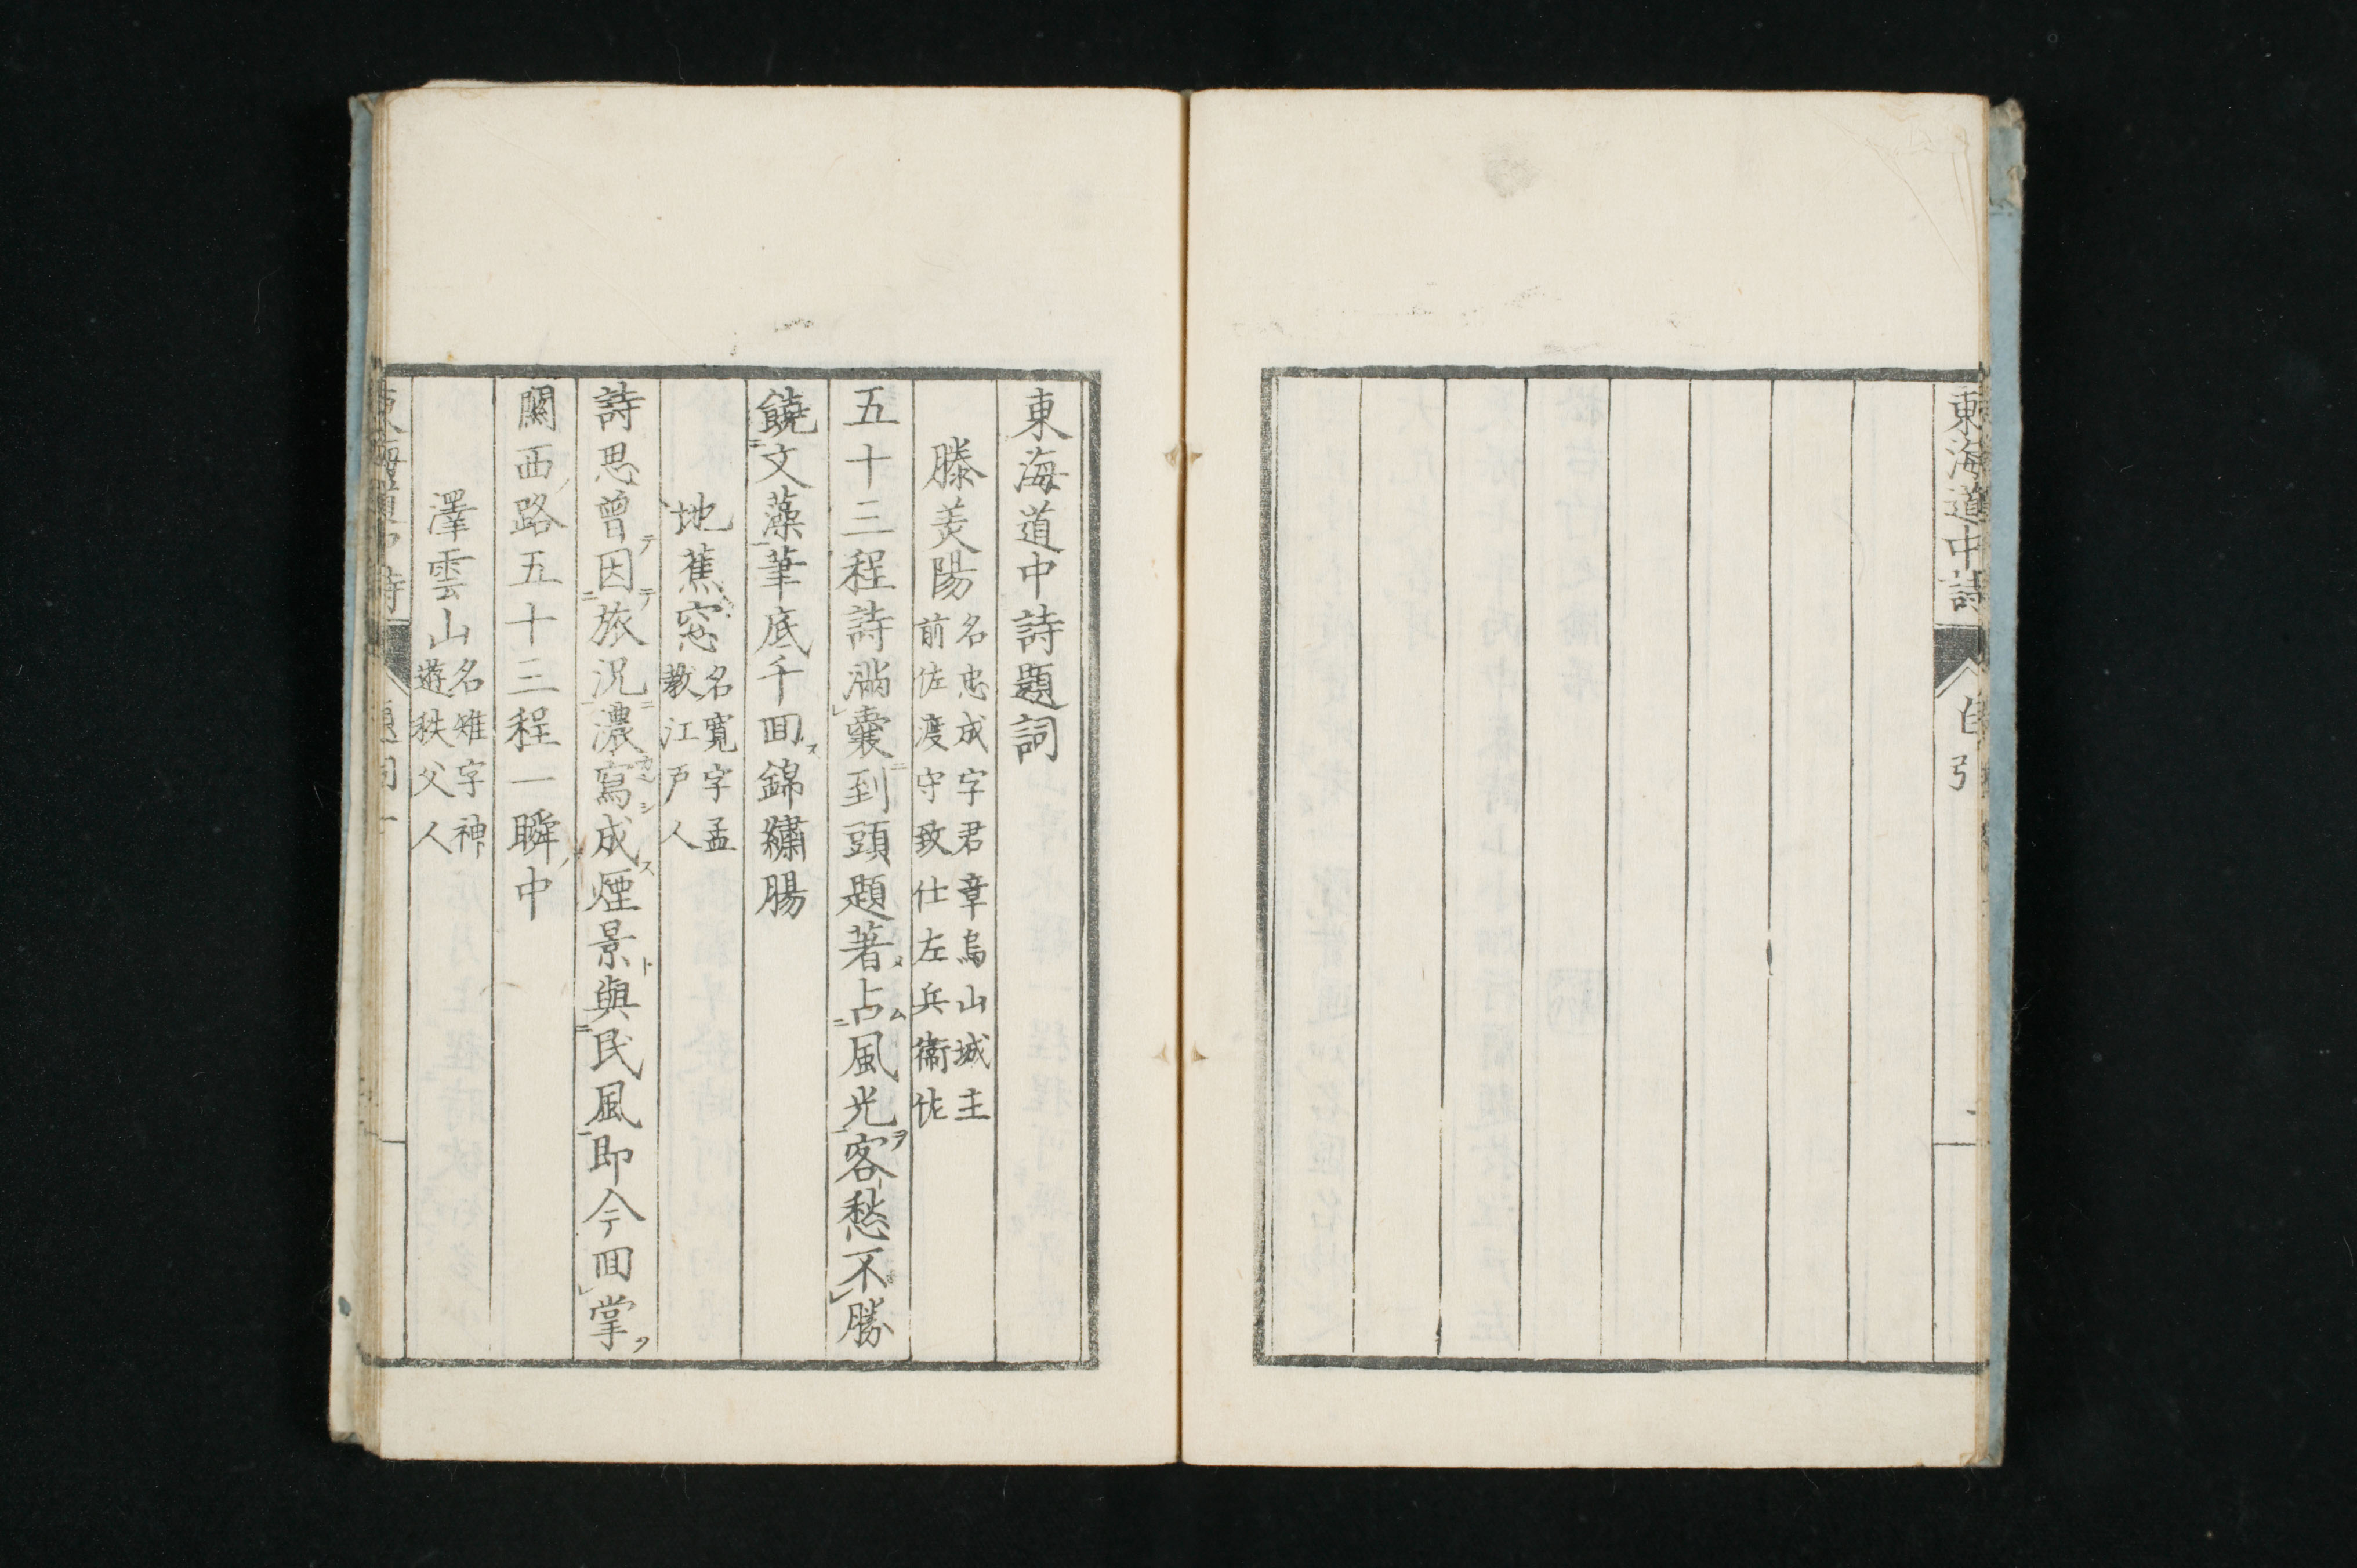 東海道中詩
自引
一
東海道中詩題詞
滕美陽 名忠成字君章烏山城主
前佐渡守致仕左兵衞佐
五十三程詩滿囊到頭題著占風光客愁不勝
饒文藻筆底千回錦繡腸
地蕉窓 名寬字孟
敎江戸人
詩思曾因旅況濃寫成煙景與民風即今回掌
關西路五十三程一瞬中
澤雲山 名雉字神
遊秩父人